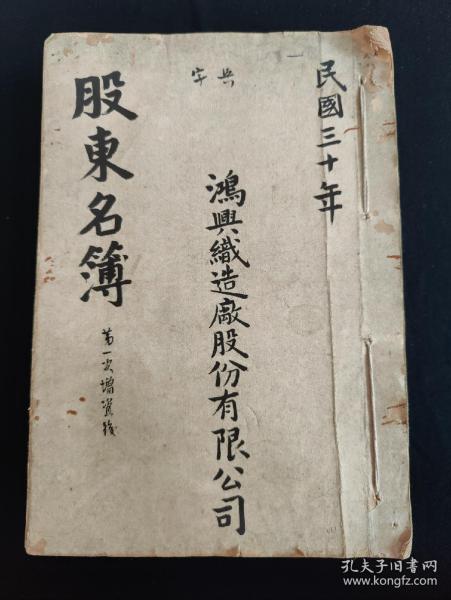 民國三十年
興字
鴻興織造廠股份有限公司
股東名簿
第一次增資後
孔夫子旧书网
www.kongfz.com